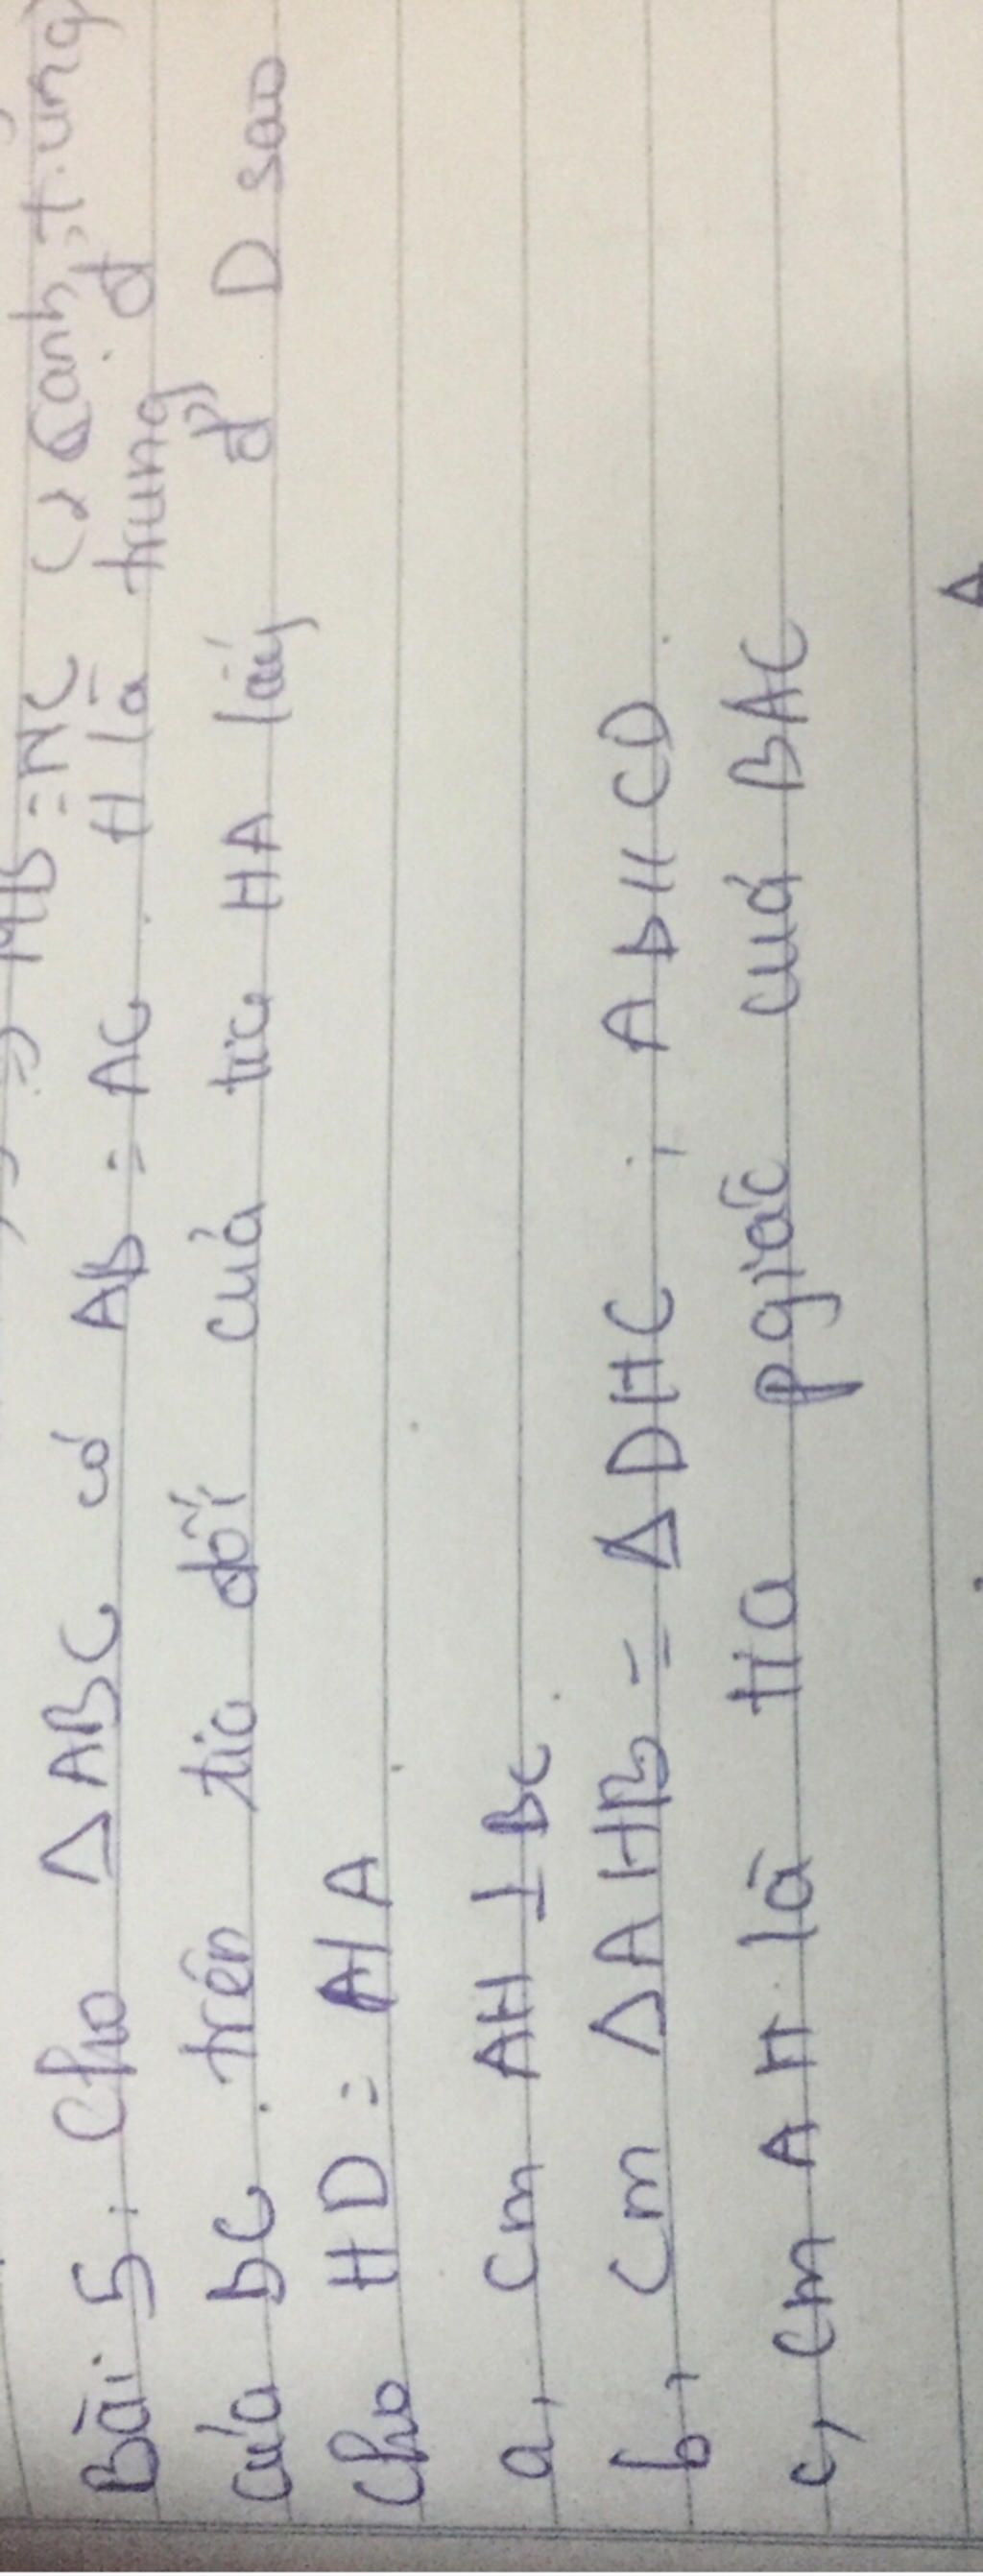 MB = NC (2 cạnh t.ứng
Bài 5, Cho Δ ABC có AB = AC. H là trung đ
của BC. trên tia đối của tia HA lấy đ' D sao
cho HD = AHA
a, Cm AH ⊥ BC
b, Cm Δ AHB = Δ DHC ; AB // CD
c, Cm AH là tia pgiác của BAC
A